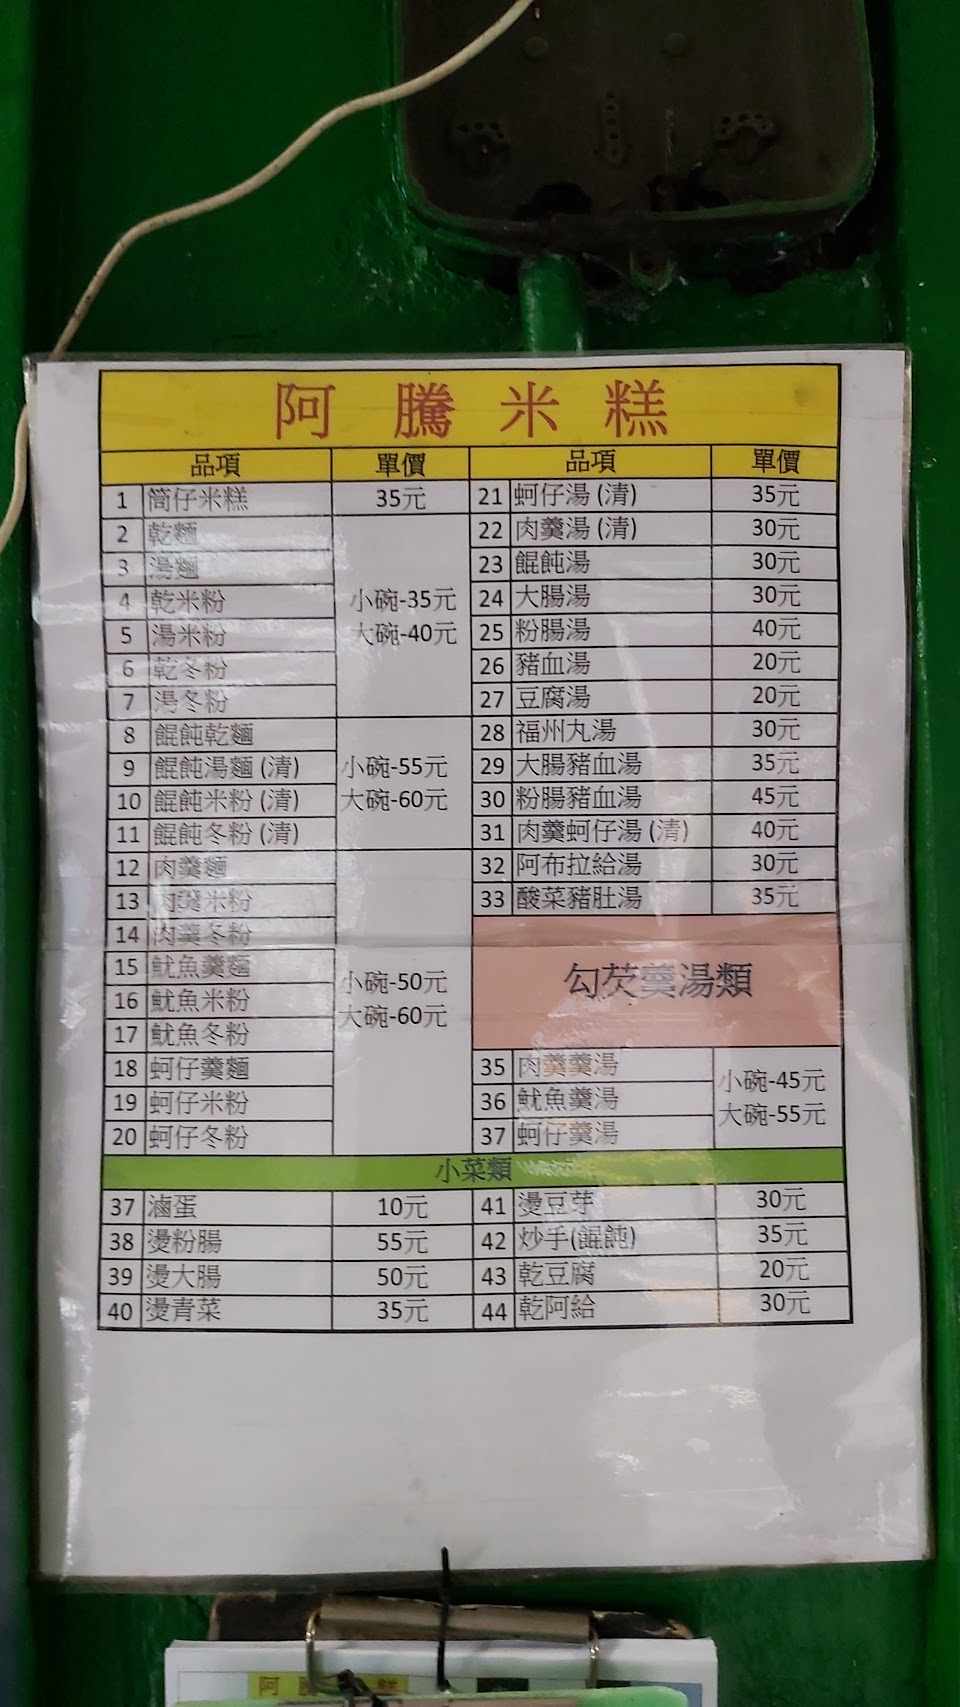 阿騰米糕
品項 單價 品項 單價
1 筒仔米糕 35元 21 蚵仔湯(清) 35元
2 乾麵 22 肉羹湯(清) 30元
3 湯麵 23 餛飩湯 30元
4 乾米粉 小碗-35元 24 大腸湯 30元
5 湯米粉 大碗-40元 25 粉腸湯 40元
6 乾冬粉 26 豬血湯 20元
7 湯冬粉 27 豆腐湯 20元
8 餛飩乾麵 28 福州丸湯 30元
9 餛飩湯麵(清) 小碗-55元 29 大腸豬血湯 35元
10 餛飩米粉(清) 大碗-60元 30 粉腸豬血湯 45元
11 餛飩冬粉(清) 31 肉羹蚵仔湯(清) 40元
12 肉羹麵 32 阿布拉給湯 30元
13 肉羹米粉 33 酸菜豬肚湯 35元
14 肉羹冬粉
15 魷魚羹麵 小碗-50元 勾芡羹湯類
16 魷魚米粉 大碗-60元
17 魷魚冬粉
18 蚵仔羹麵 35 肉羹羹湯 小碗-45元
19 蚵仔米粉 36 魷魚羹湯 大碗-55元
20 蚵仔冬粉 37 蚵仔羹湯
小菜類
37 滷蛋 10元 41 燙豆芽 30元
38 燙粉腸 55元 42 炒手(餛飩) 35元
39 燙大腸 50元 43 乾豆腐 20元
40 燙青菜 35元 44 乾阿給 30元
阿騰米糕